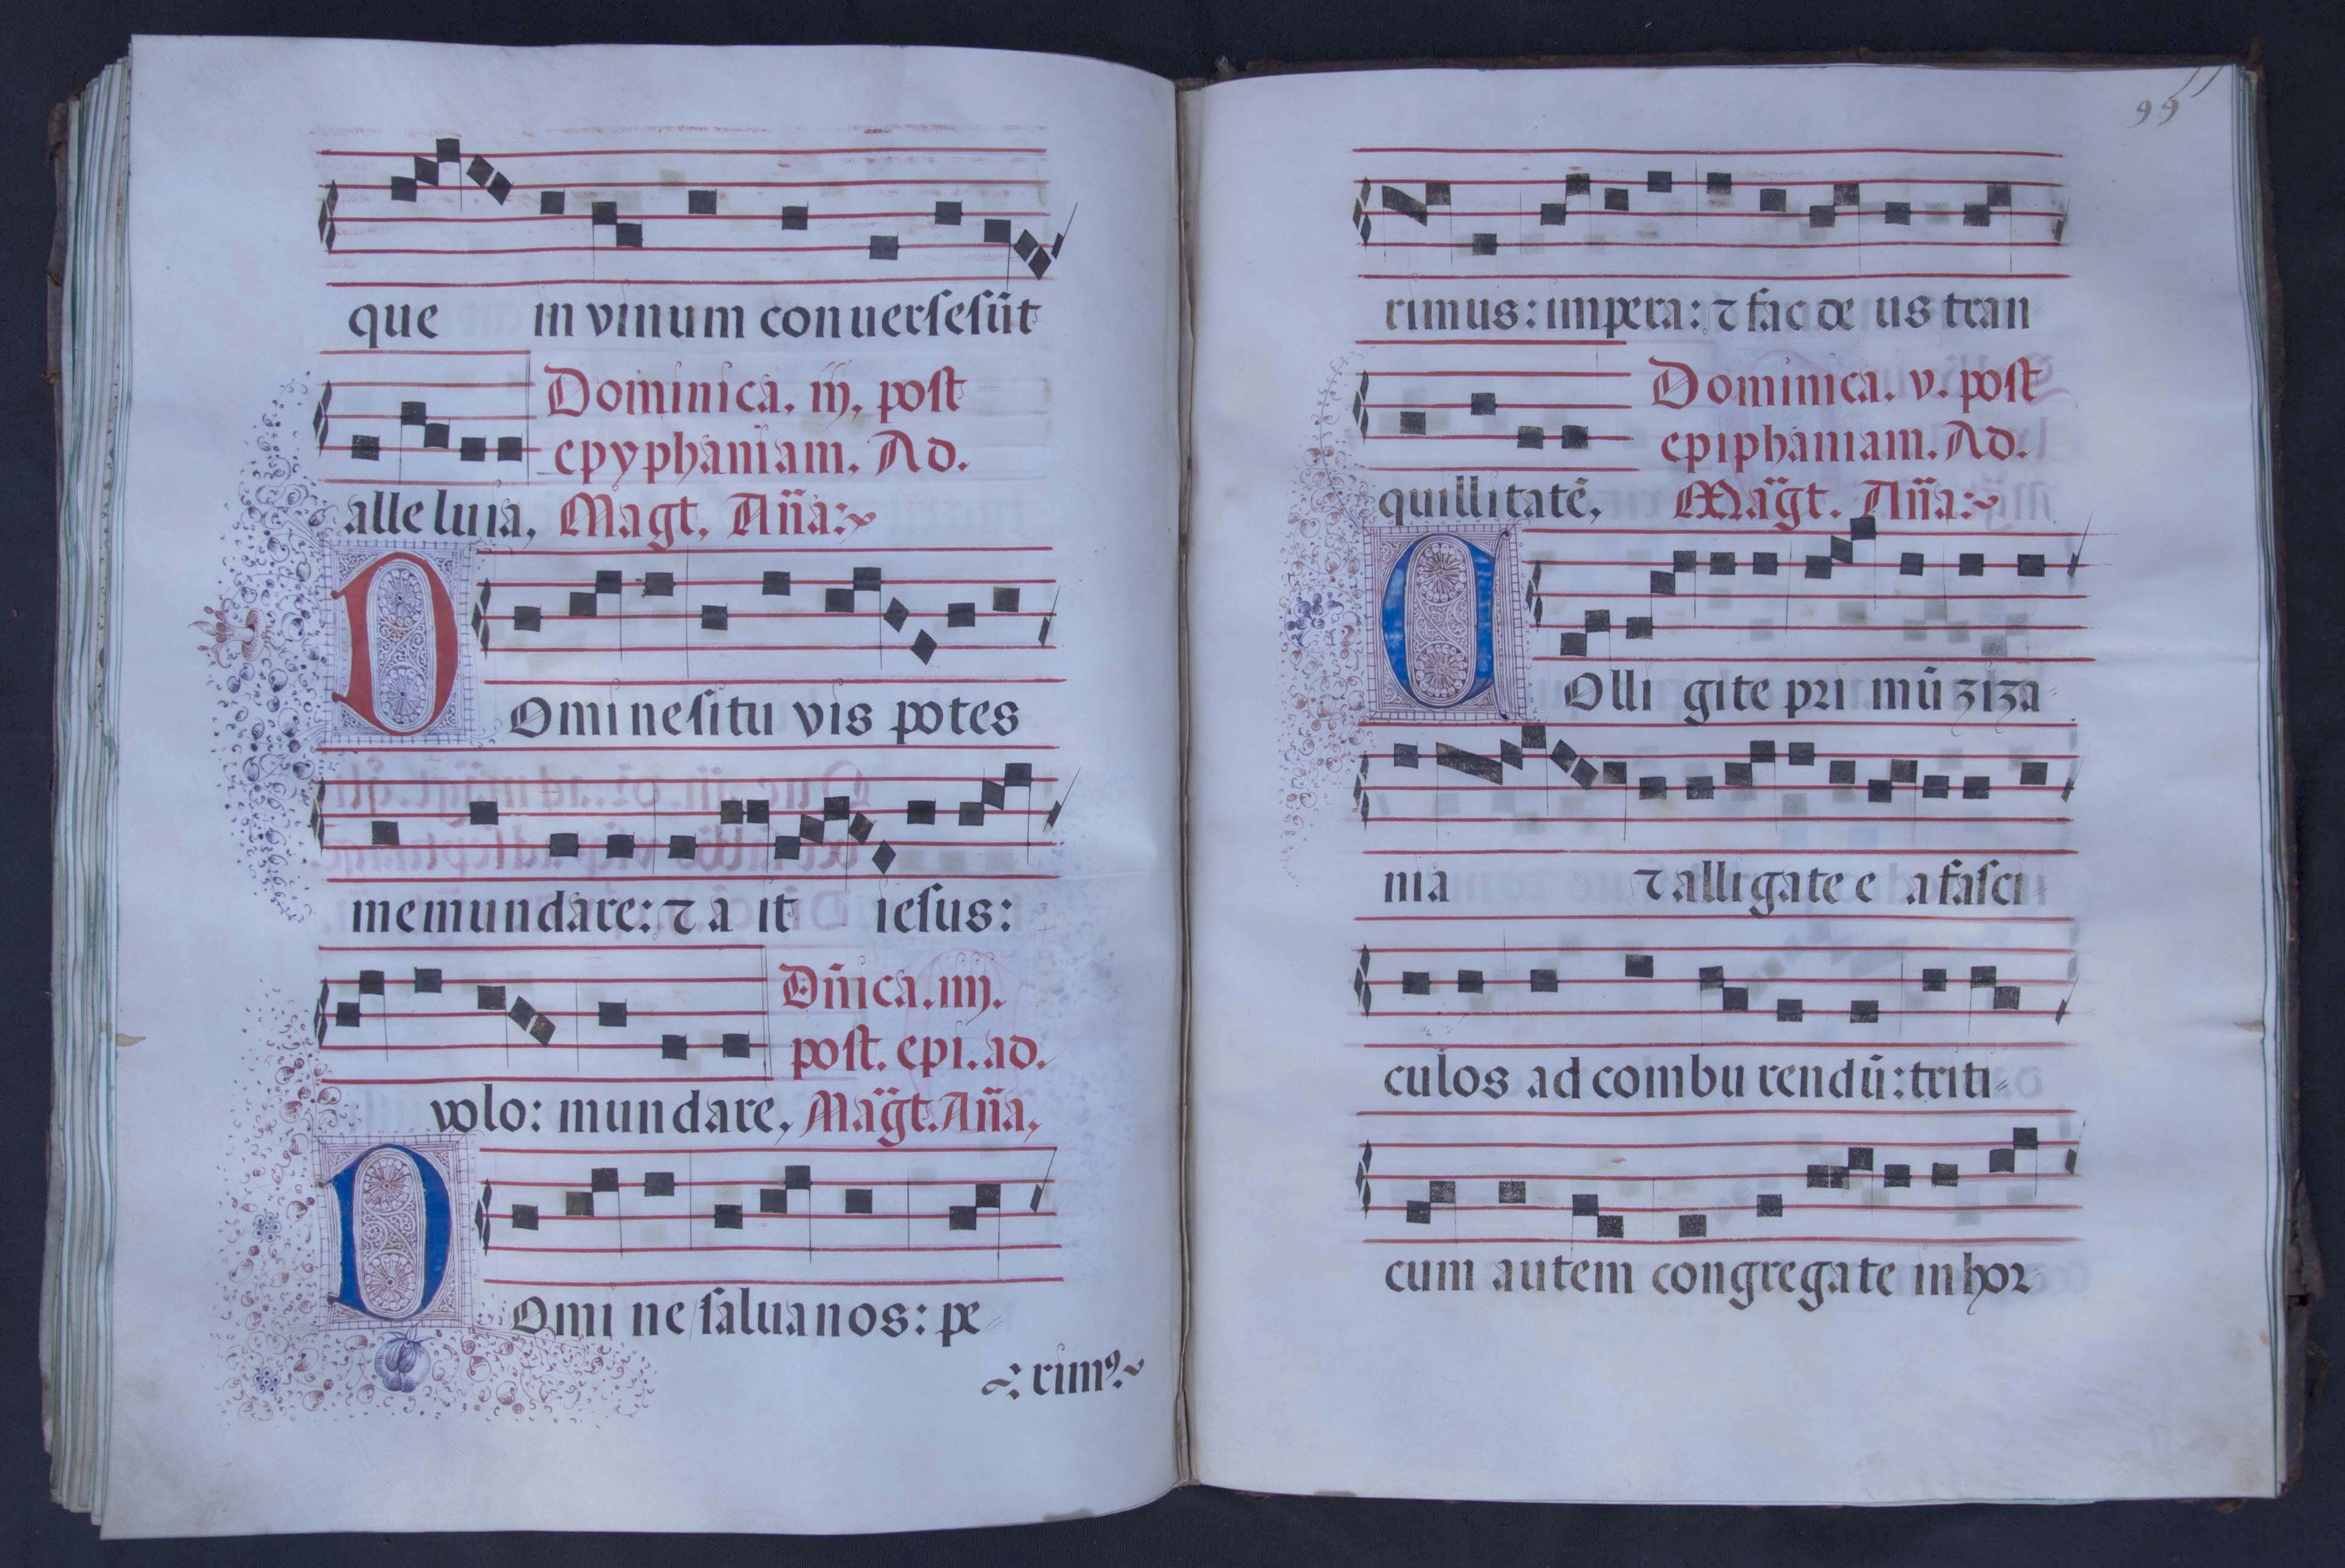 que in vinum conuersesūt
Dominica. iij. post
epyphaniam. Ad.
alleluia, Magt. Aña:
Domine si tu vis potes
me mundare: ⁊ a it iesus:
Dñica. iiij.
post. epi. ad.
volo: mundare, Magt. Aña,
Domine salua nos: pe
rimꝰ
99
rimus: impera: ⁊ fac de us tran
Dominica. v. post
epiphaniam. Ad.
quillitatē. Magt. Aña:
Colli gite pri mū ziza
nia ⁊ alligate e a fasci
culos ad combu rendū: triti
cum autem congregate in hor